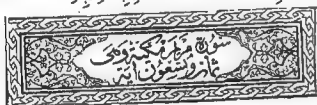 سورة مريم مكية وهي
ثمان وتسعون آية